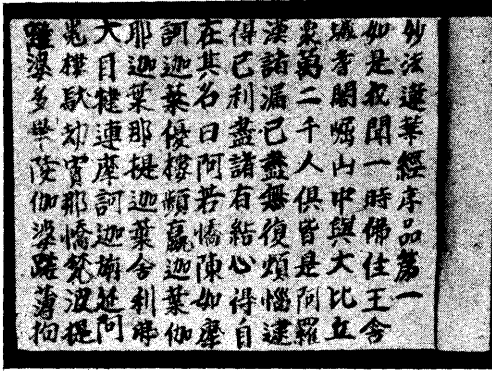 妙法蓮華經序品第一
如是我聞一時佛住王舍
城耆闍崛山中與大比丘
衆萬二千人俱皆是阿羅
漢諸漏已盡無復煩惱逮
得己利盡諸有結心得自
在其名曰阿若憍陳如摩
訶迦葉優樓頻蠃迦葉伽
耶迦葉那提迦葉舍利弗
大目犍連摩訶迦旃延阿
㝹樓馱劫賓那憍梵波提
離婆多畢陵伽婆蹉薄拘